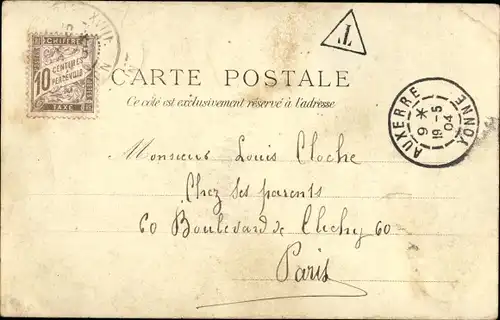 T
CHIFFRE
10 CENTIMES
À PERCEVOIR
TAXE
CARTE POSTALE
Ce côté est exclusivement réservé à l'adresse
AUXERRE
9 *
19 - 5
04
YONNE
Monsieur Louis Cloche
Chez ses parents
60 Boulevard de Clichy 60
Paris